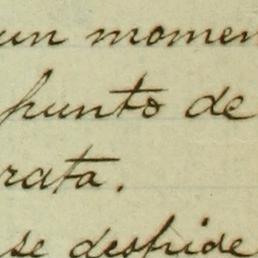 un momen
punto de
rata.
se despide